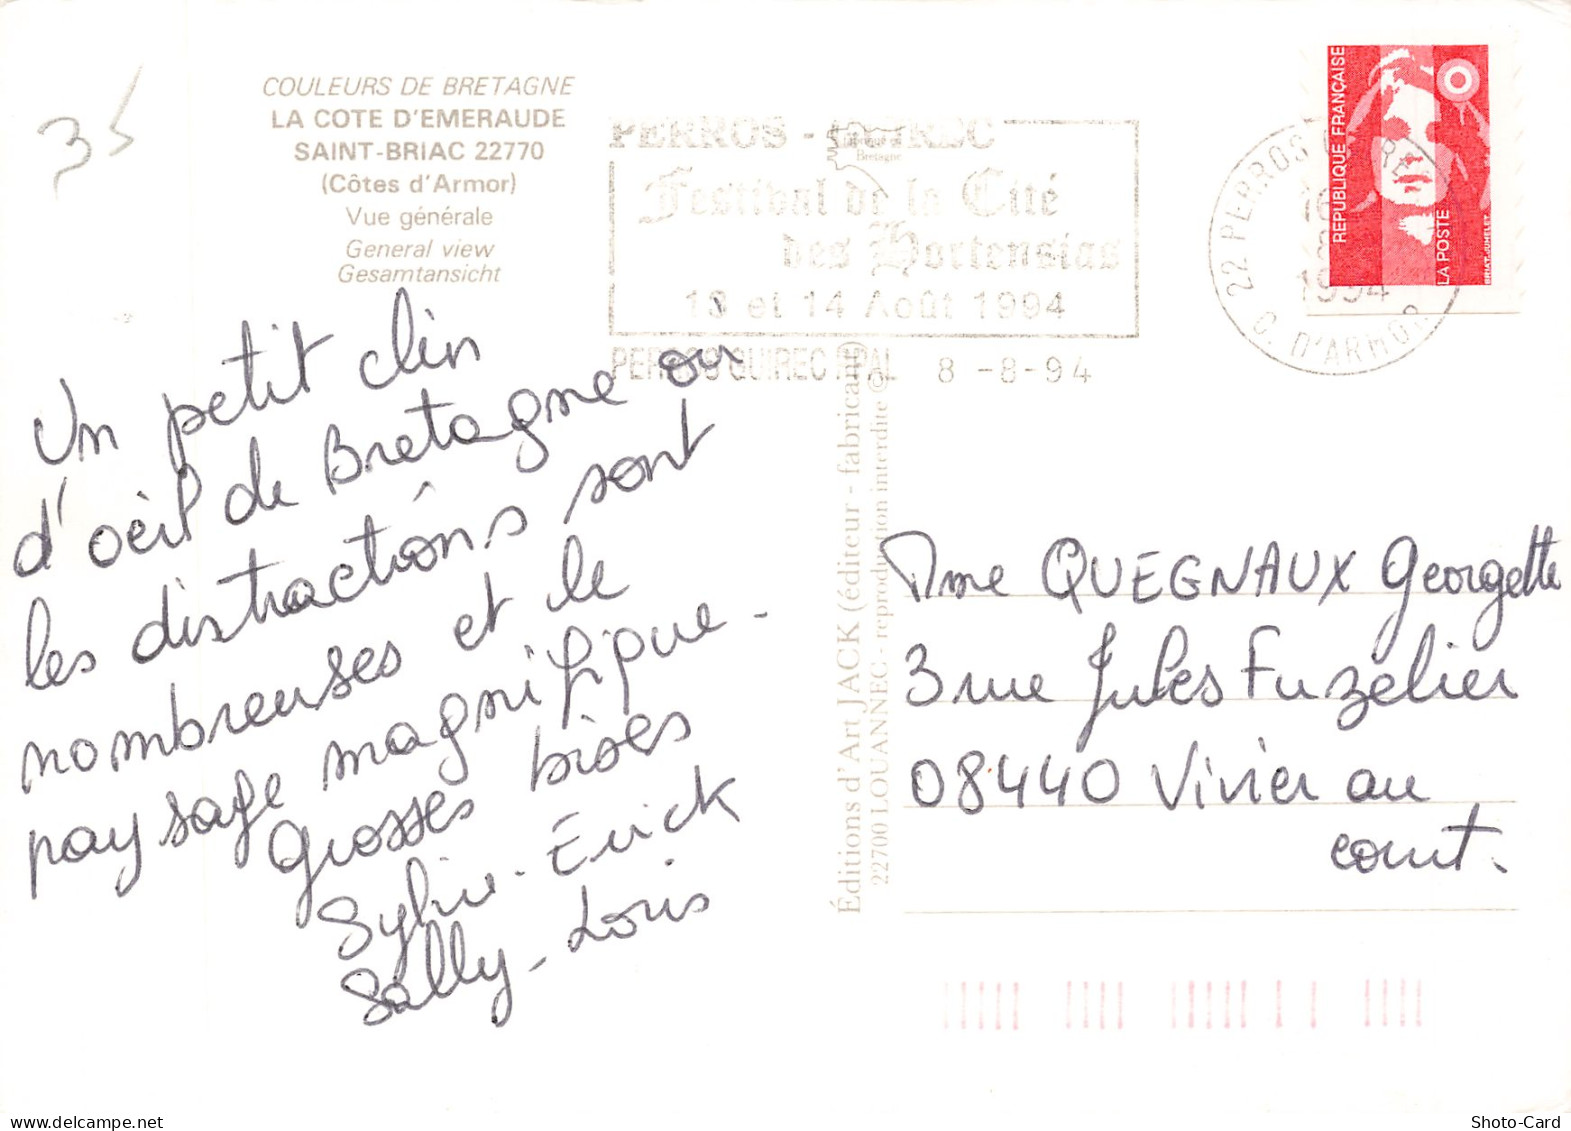 35
COULEURS DE BRETAGNE
LA COTE D'EMERAUDE
SAINT-BRIAC 22770
(Côtes d'Armor)
Vue générale
General view
Gesamtansicht
Un petit clin
d'oeil de Bretagne ou
les distractions sont
nombreuses et le
paysage magnifique.
Grosses bises
Sylvie - Erick
Sally - Loris
PERROS - GUIREC
Bretagne
Festival de la Cité
des Hortensias
13 et 14 Août 1994
PERROS GUIREC PPAL 8 -8-94
22 PERROS GUIREC
16
1994
C. D'ARMOR
REPUBLIQUE FRANÇAISE
LA POSTE
BRIAT-JUMELET
Éditions d'Art JACK (éditeur - fabricant)
22700 LOUANNEC - reproduction interdite ©
Mme QUEGNAUX Georgette
3 rue Jules Fuzelier
08440 Vivier au
court.
Shoto-Card